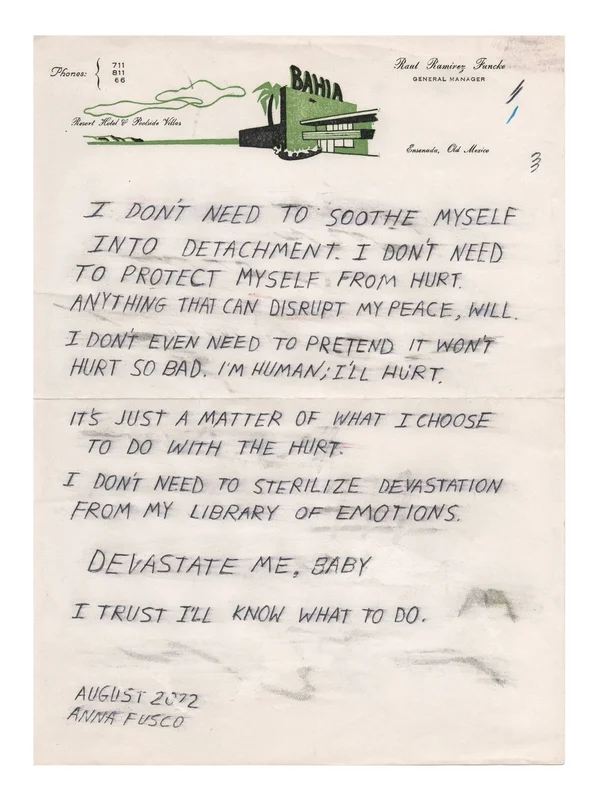 Phones: { 711
811
66
BAHIA
Resort Hotel & Poolside Villas
Raul Ramirez Funcke
GENERAL MANAGER
Ensenada, Old Mexico
I DON'T NEED TO SOOTHE MYSELF
INTO DETACHMENT. I DON'T NEED
TO PROTECT MYSELF FROM HURT.
ANYTHING THAT CAN DISRUPT MY PEACE, WILL.
I DON'T EVEN NEED TO PRETEND IT WON'T
HURT SO BAD. I'M HUMAN; I'LL HURT.
IT'S JUST A MATTER OF WHAT I CHOOSE
TO DO WITH THE HURT.
I DON'T NEED TO STERILIZE DEVASTATION
FROM MY LIBRARY OF EMOTIONS.
DEVASTATE ME, BABY
I TRUST I'LL KNOW WHAT TO DO.
AUGUST 2022
ANNA FUSCO